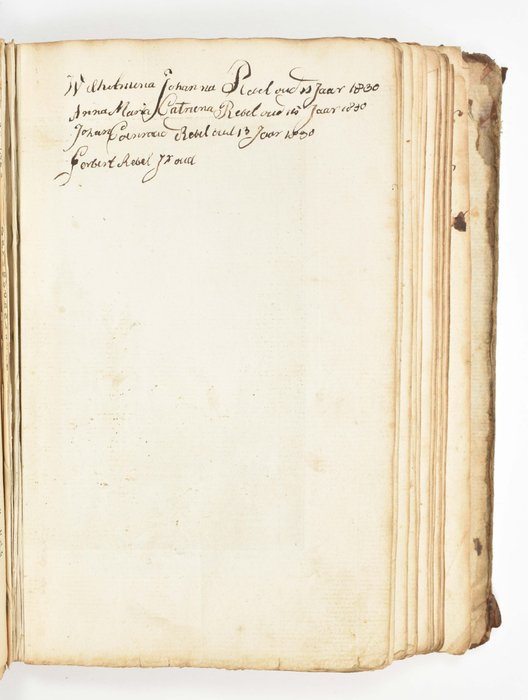 Wilhelmina Johanna Rebel oud 15 Jaar 1830
Anna Maria Catrina Rebel oud 14 Jaar 1830
Johan Coenraad Rebel oud 13 Jaar 1830
Rebel oud